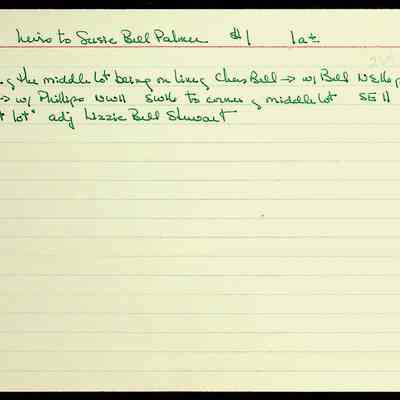 heirs to Susie Bell Palmer #1 1 a ±
g the middle lot being on line g Chas Bell → w/ Bell N 54 p
→ w/ Phillips NW 11 SW 16 to corner g middle lot SE 11
lot" adj Lizzie Bell Stewart